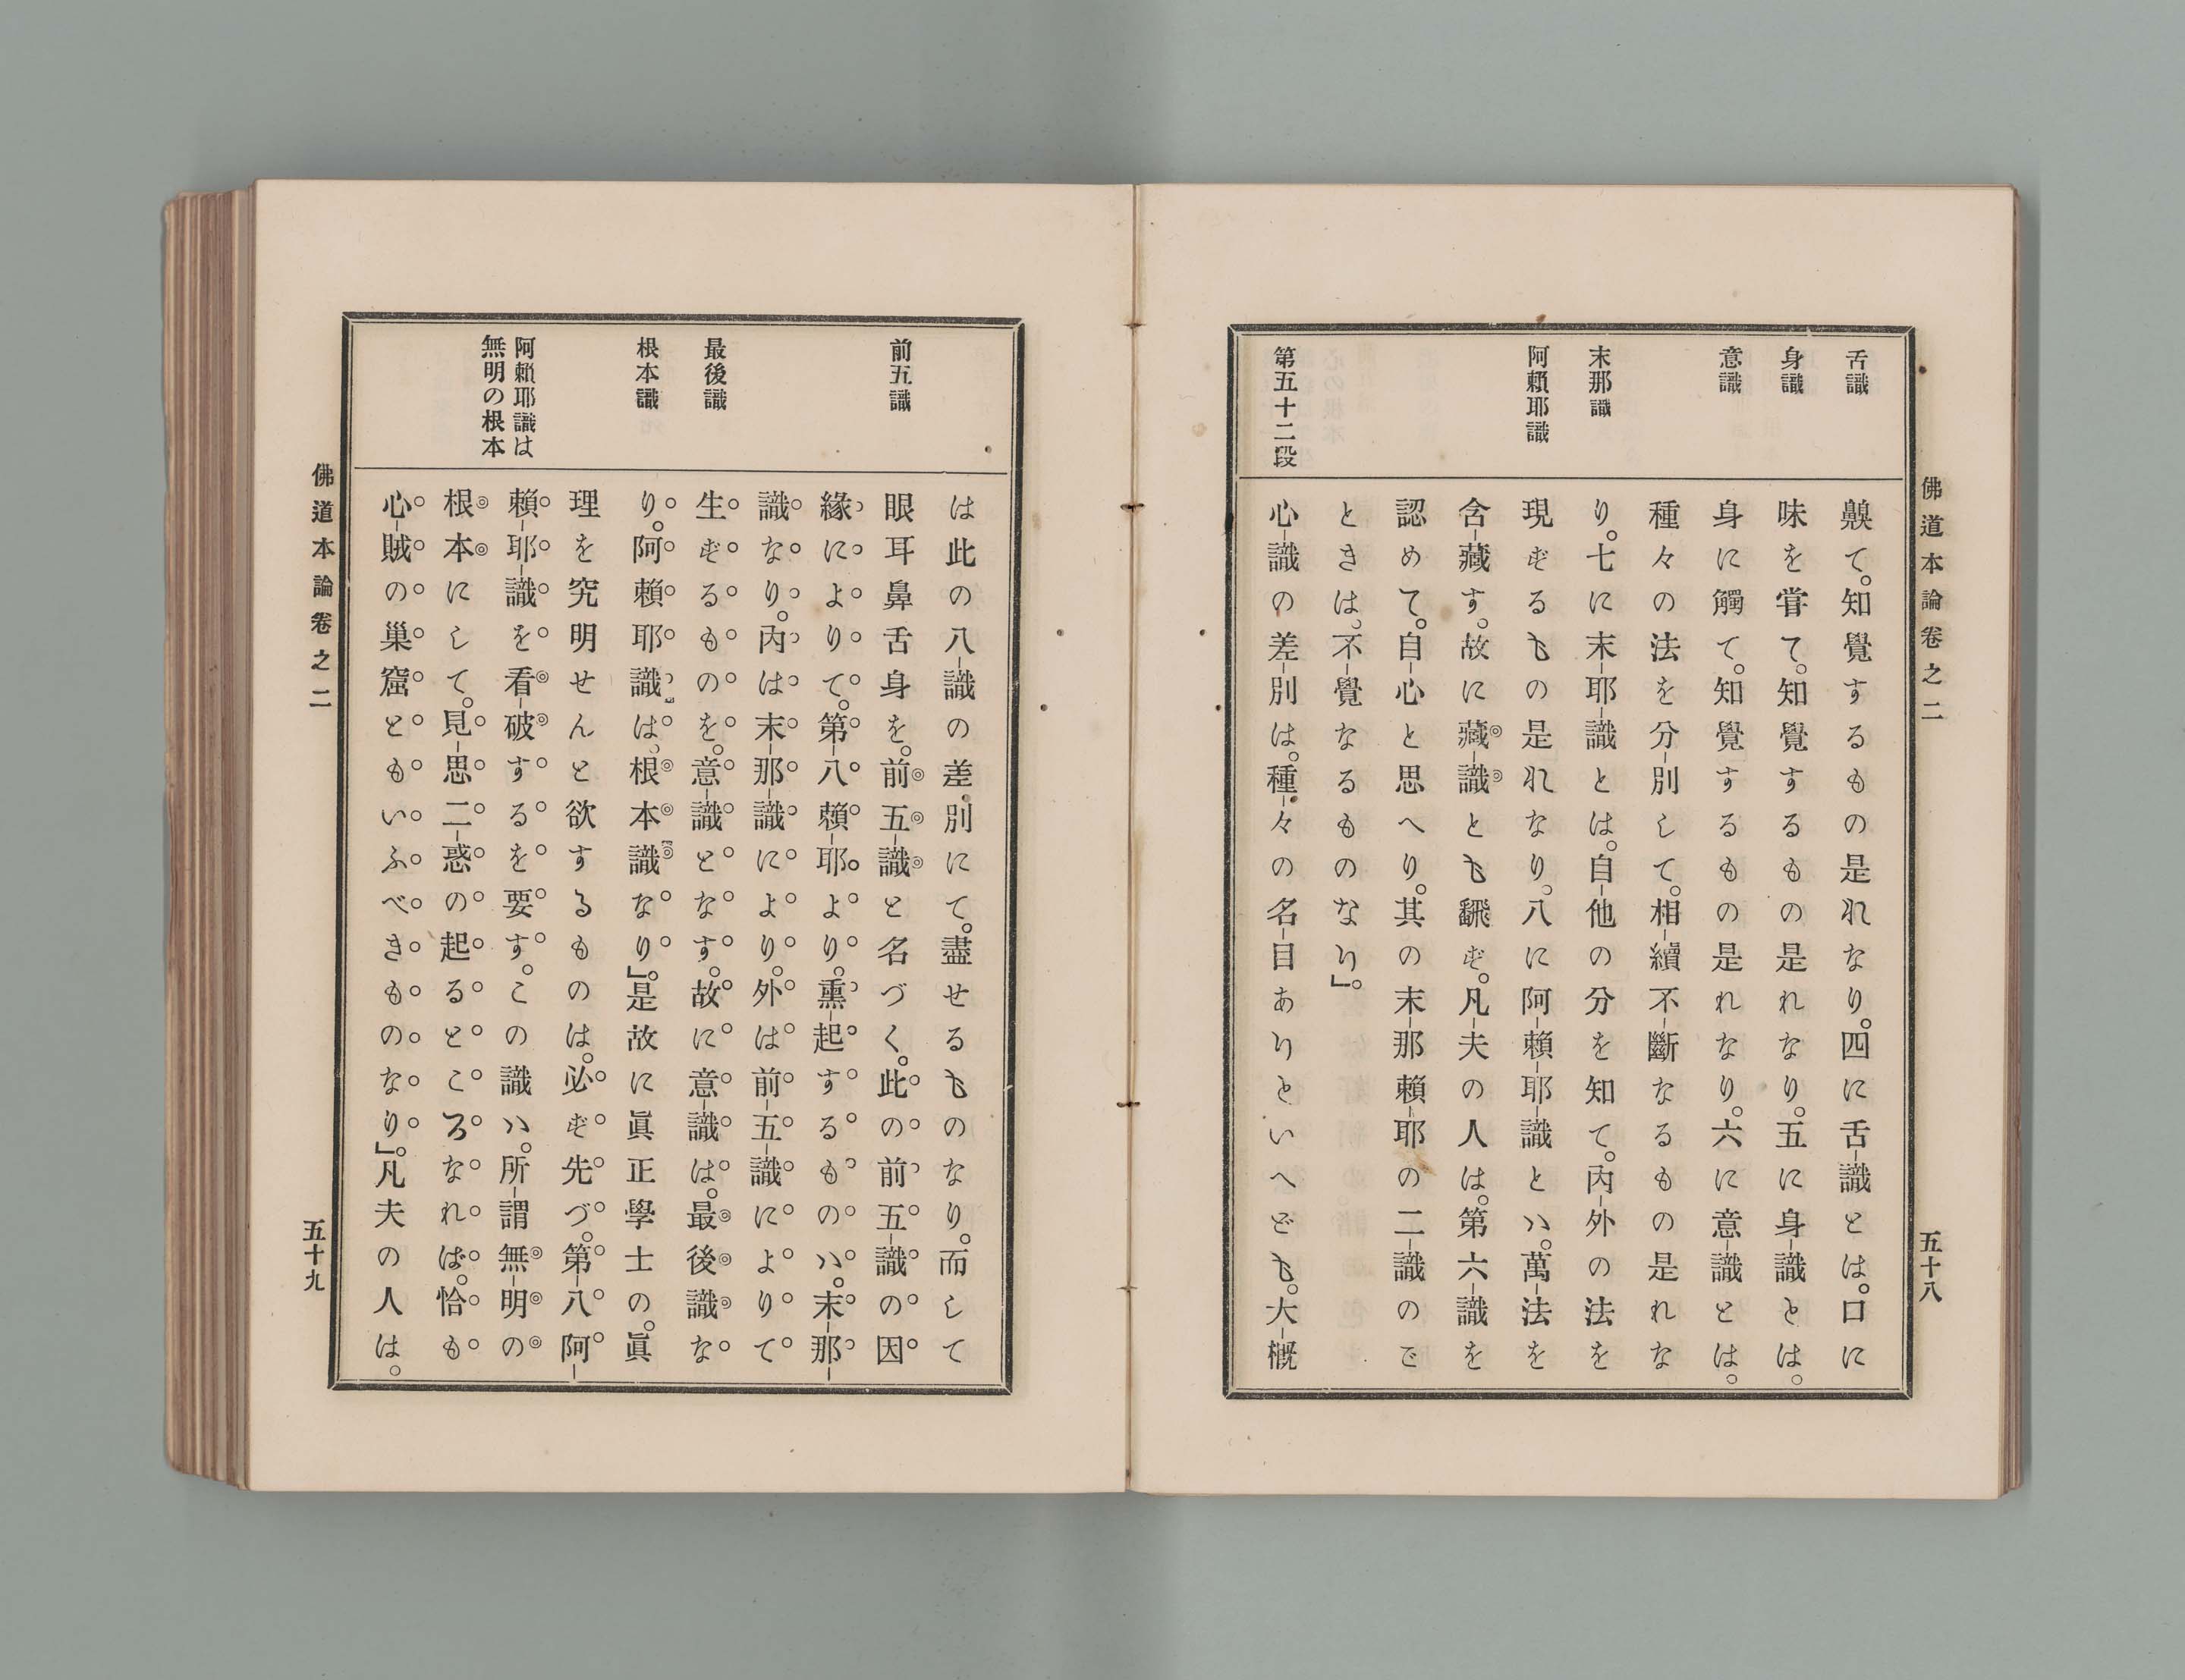 佛道本論卷之二
五十八
舌識
身識
意識
末那識
阿賴耶識
第五十二段
齅て。知覺するもの是れなり。四に舌-識とは。口に
味を甞て。知覺するもの是れなり。五に身-識とは。
身に觸て。知覺するもの是れなり。六に意-識とは。
種々の法を分-別して。相-續不-斷なるもの是れな
り。七に末-耶-識とは。自-他の分を知て。內-外の法を
現ずるもの是れなり。八に阿-賴-耶-識とハ。萬-法を
含-藏す。故に藏-識とも飜ず。凡-夫の人は。第六-識を
認めて。自-心と思へり。其の末-那賴-耶の二-識のご
ときは。不-覺なるものなり」。
心-識の差-別は。種-々の名-目ありといへども。大-概
前五識
最後識
根本識
阿賴耶識は
無明の根本
は此の八-識の差別にて。盡せるものなり。而して
眼耳鼻舌身を。前五-識と名づく。此の前五-識の因
緣によりて。第-八賴-耶より。熏-起するものハ。末-那-
識なり。內は末-那-識により。外は前-五-識によりて
生ずるものを。意-識となす。故に意-識は。最後識な
り。阿賴耶識は、根本識なり」。是故に眞正學士の。眞
理を究明せんと欲するものは。必ず先づ。第-八阿-
賴-耶-識を看-破するを要す。この識ハ。所-謂無-明の
根本にして。見-思二-惑の起るところなれば。恰も
心-賊の巢窟ともいふべきものなり」。凡夫の人は。
佛道本論卷之二
五十九